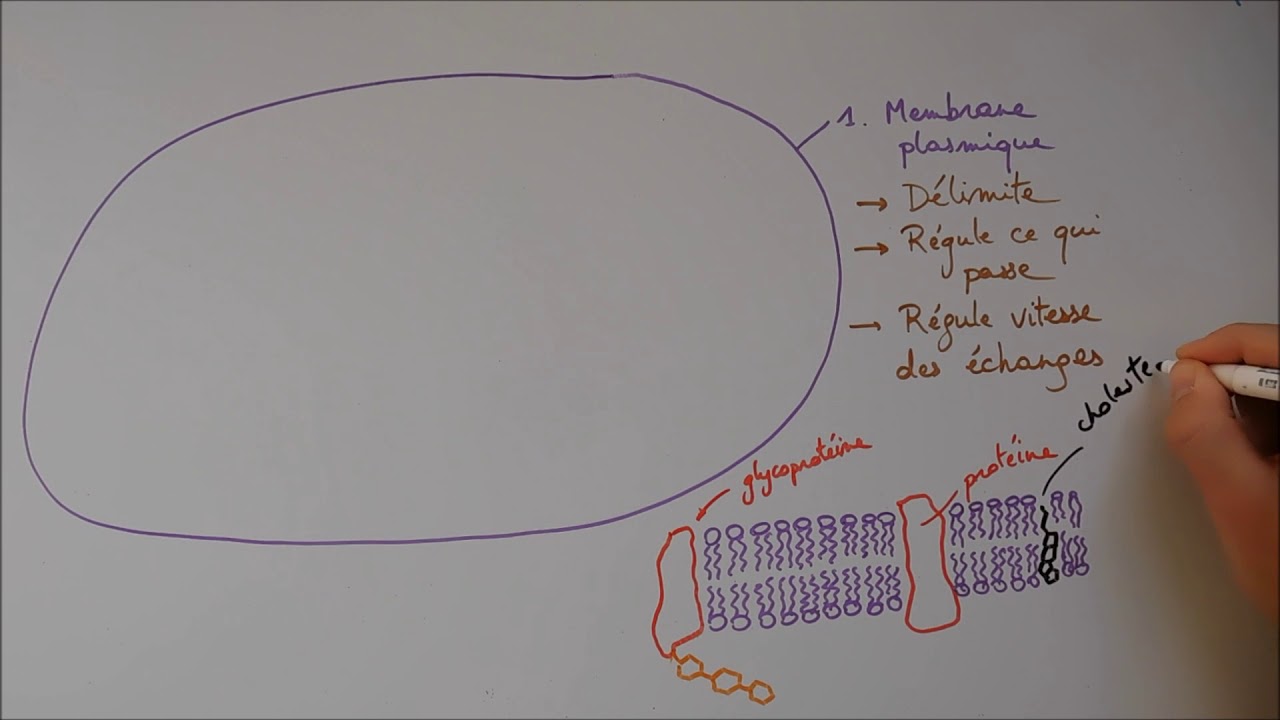 1. Membrane
plasmique
→ Délimite
→ Régule ce qui
passe
→ Régule vitesse
des échanges
choleste
glycoprotéine
protéine